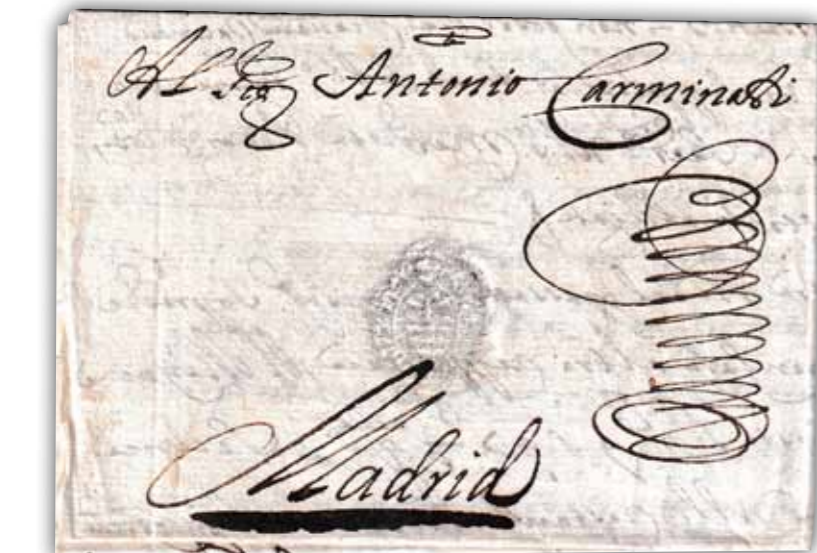 Al Sor Antonio Carminati
Madrid